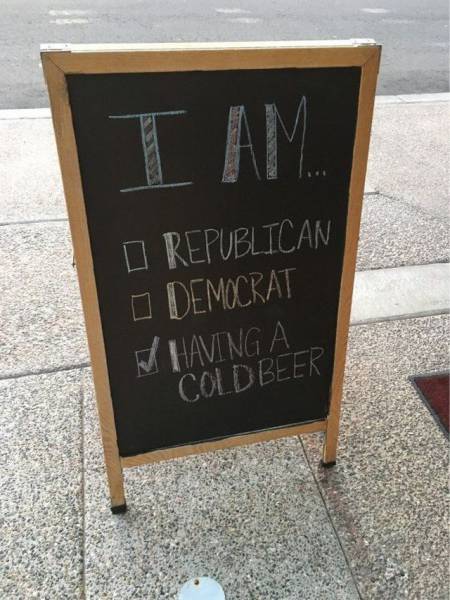 I AM...
☐ REPUBLICAN
☐ DEMOCRAT
☑ HAVING A
COLD BEER